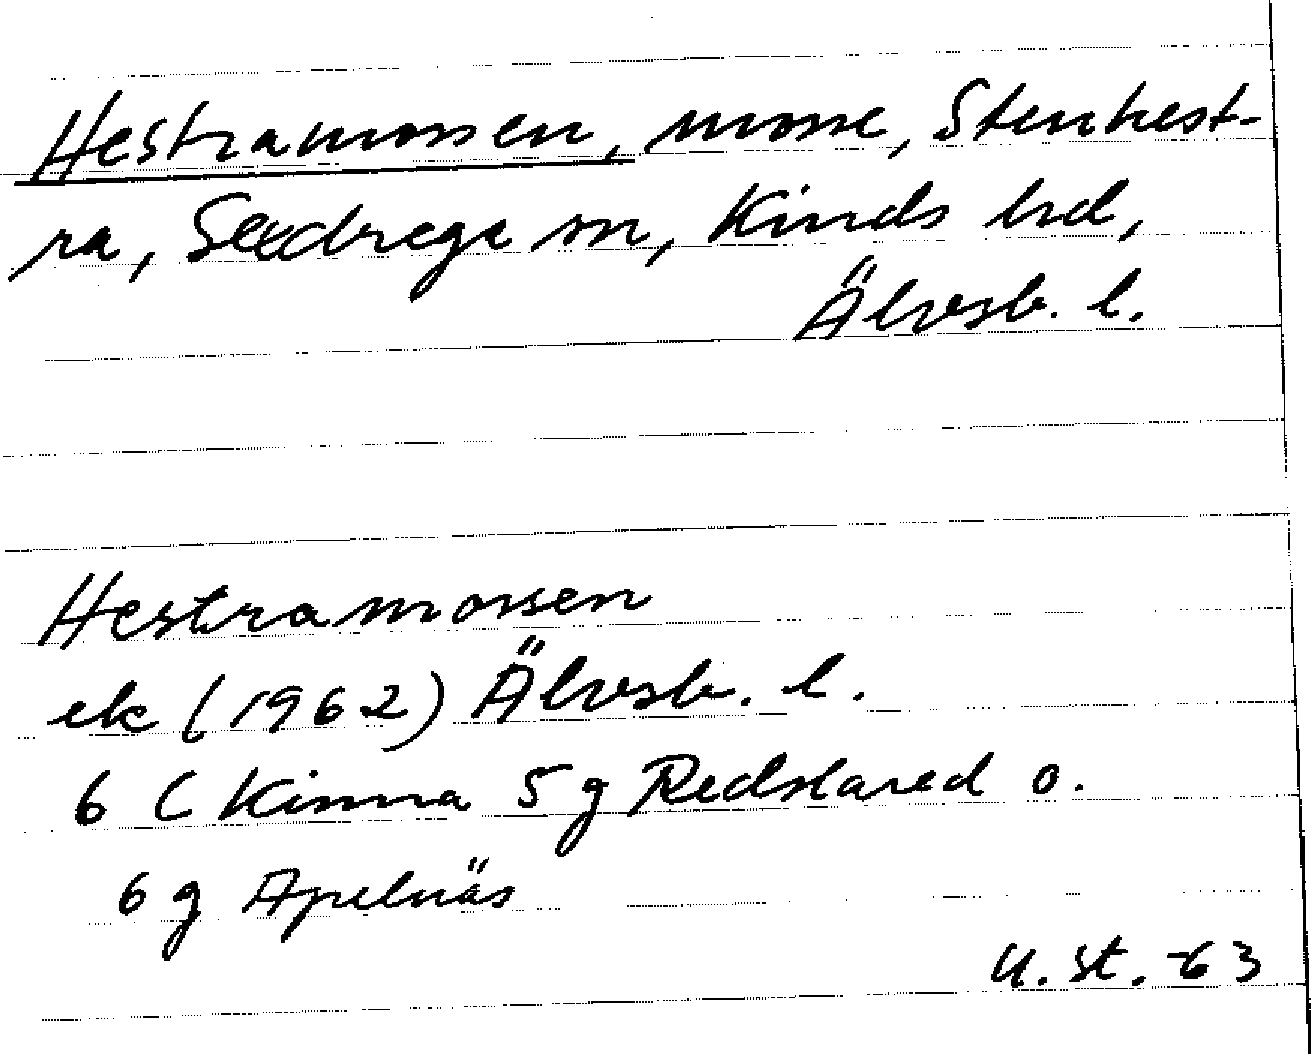 Hestramossen, mosse, Stenhest-
ra, Seedrega sn, Kinds hd,
Älvsb. l.
Hestramossen
ek (1962) Älvsb. l.
6 C Kinna 5 g Redslared o.
6 g Apelnäs
U. st. -63